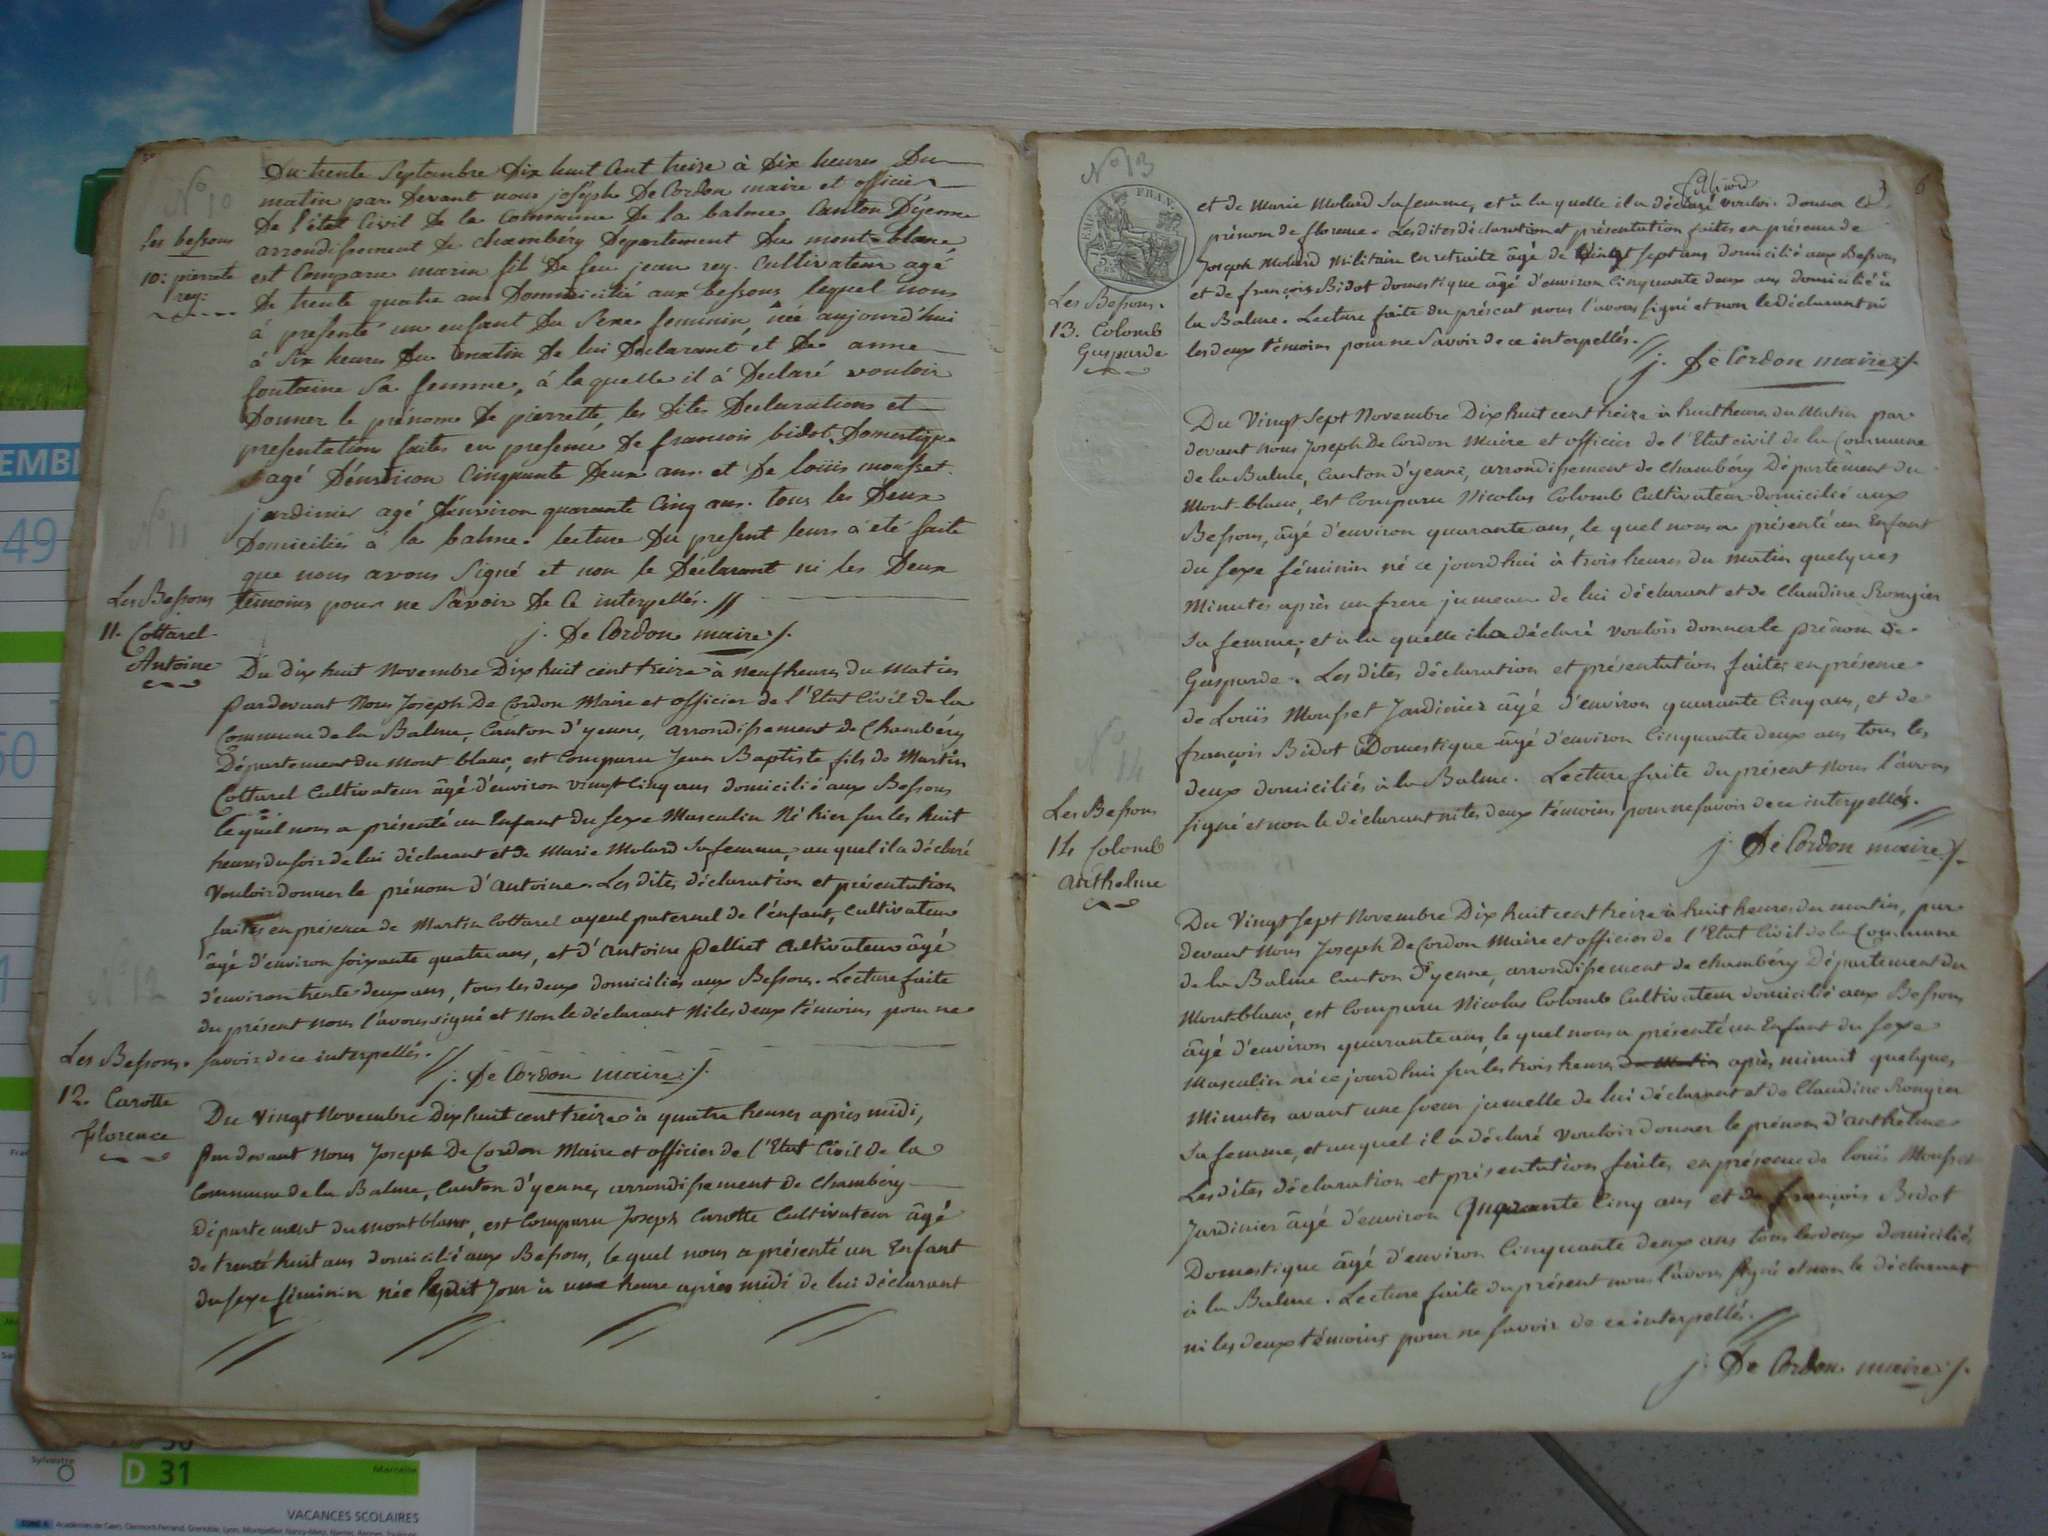 N° 10
Les bessons
10: pierrette
rey:
Du trente Septembre Dix huit Cent treize à Dix heures Du
matin par Devant nous joseph De Cordon maire et officier
De l'état Civil De la Commune De la balme, Canton D'yenne
arrondissement De chambéry Département Du mont-blanc
est Comparu marin fil De feu jean rey. Cultivateur agé
De trente quatre ans Domicilié aux bessons lequel nous
à presenté un enfant Du Sexe feminin, née aujourd'hui
à Six heures Du matin De lui Déclarant et De anne
fontaine Sa femme, à laquelle il à Declaré vouloir
Donner le prénom De pierrette, les Dites Declarations et
presentation faites en presence De francois bidot Domestique
agé D'environ Cinquante Deux ans et De loüis monfset
jardinier agé D'environ quarante Cinq ans. tous les Deux
Domiciliés à la balme. lecture Du present leurs à eté faite
que nous avons Signé et non le Déclarant ni les Deux
témoins pour ne Savoir De Ce interpellés. //
j. De Cordon maire
N° 11
Les Bessons
11. Cottarel
Antoine
Du dix huit Novembre Dix huit cent treize à neuf heures du matin
Pardevant Nous Joseph De Cordon Maire et officier de l'Etat Civil de la
Commune de la Balme, Canton d'yenne, arrondissement de Chambéry
Département du Mont blanc, est Comparu Jean Baptiste fils de Martin
Cottarel Cultivateur âgé d'environ vingt Cinq ans domicilié aux Bessons
lequel nous a présenté un Enfant du sexe Masculin Né hier sur les huit
heures du soir de lui déclarant et de Marie Molard sa femme, au quel il a déclaré
Vouloir donner le prénom d'Antoine. Les dites déclaration et présentation
faites en présence de Martin Cottarel ayeul paternel de l'enfant, Cultivateur
âgé d'environ soixante quatre ans, et d'Antoine Pelliet Cultivateur âgé
d'environ trente deux ans, tous les deux domiciliés aux Bessons. Lecture faite
du présent nous l'avons signé et Non le déclarant Ni les deux témoins pour ne
savoir de ce interpellés. //
j. De Cordon maire
N° 12
Les Bessons.
12. Carotte
florence
Du vingt Novembre Dix huit cent treize à quatre heures après midi,
Par devant Nous Joseph De Cordon Maire et officier de l'Etat Civil de la
Commune de la Balme, Canton d'yenne, arrondissement de Chambéry
Département du mont blanc, est Comparu Joseph Carotte Cultivateur âgé
de trente huit ans domicilié aux Bessons, le quel nous a présenté un Enfant
du sexe féminin née ledit Jour à une heure après midi de lui déclarant
N° 13
6
FRAN
et de Marie Molard sa femme, et à la quelle il a déclaré vouloir donner le
prénom de florence. Les dites déclaration et présentation faites en présence de
Joseph Molard Militaire en retraite âgé de Vingt sept ans domicilié aux Bessons
et de françois Bidot domestique âgé d'environ Cinquante deux ans domicilié à
la Balme. Lecture faite du présent nous l'avons signé et non le déclarant ni
les deux témoins pour ne Savoir de ce interpellés. //
j. De Cordon maire
Les Bessons.
13. Colomb
Gasparde
Du Vingt Sept Novembre Dix huit cent treize à huit heures du Matin par
devant nous Joseph De Cordon Maire et officier de l'Etat civil de la Commune
de la Balme, Canton d'yenne, arrondissement de Chambéry Département du
Mont-blanc, est Comparu Nicolas Colomb Cultivateur domicilié aux
Bessons, âgé d'environ quarante ans, le quel nous a présenté un Enfant
du sexe féminin né ce jourd'hui à trois heures du matin quelques
Minutes après un frere jumeau de lui déclarant et de Claudine Rongier
sa femme, et à la quelle il a déclaré vouloir donner le prénom de
Gasparde. Les dites déclaration et présentation faites en présence
de Louïs Monfset Jardinier âgé d'environ quarante Cinq ans, et de
françois Bidot Domestique âgé d'environ Cinquante deux ans tous les
deux domiciliés à la Balme. Lecture faite du présent Nous l'avons
signé et non le déclarant ni les deux témoins pour ne savoir de ce interpellés. //
j. De Cordon maire
N° 14
Les Bessons
14 Colomb
Anthelme
Du Vingt sept Novembre Dix huit cent treize à huit heures du matin, par
devant Nous Joseph De Cordon Maire et officier de l'Etat Civil de la Commune
de la Balme Canton d'yenne, arrondissement de Chambéry Département du
Mont-blanc, est Comparu Nicolas Colomb Cultivateur domicilié aux Bessons
âgé d'environ quarante ans, le quel nous a présenté un Enfant du sexe
Masculin né ce jourd'hui sur les trois heures du Matin après minuit quelques
Minutes avant une soeur jumelle de lui déclarant et de Claudine Rongier
sa femme, et au quel il a déclaré vouloir donner le prénom d'anthelme
Les dites déclaration et présentation faites en présence de louïs Monfset
Jardinier âgé d'environ quarante Cinq ans et de françois Bidot
Domestique âgé d'environ Cinquante deux ans tous les deux domiciliés
à la Balme. Lecture faite du présent nous l'avons signé et non le déclarant
ni les deux témoins pour ne savoir de ce interpellés. //
j. De Cordon maire
EMBR
49
50
Sylvestre
30
D 31
Marcelle
VACANCES SCOLAIRES